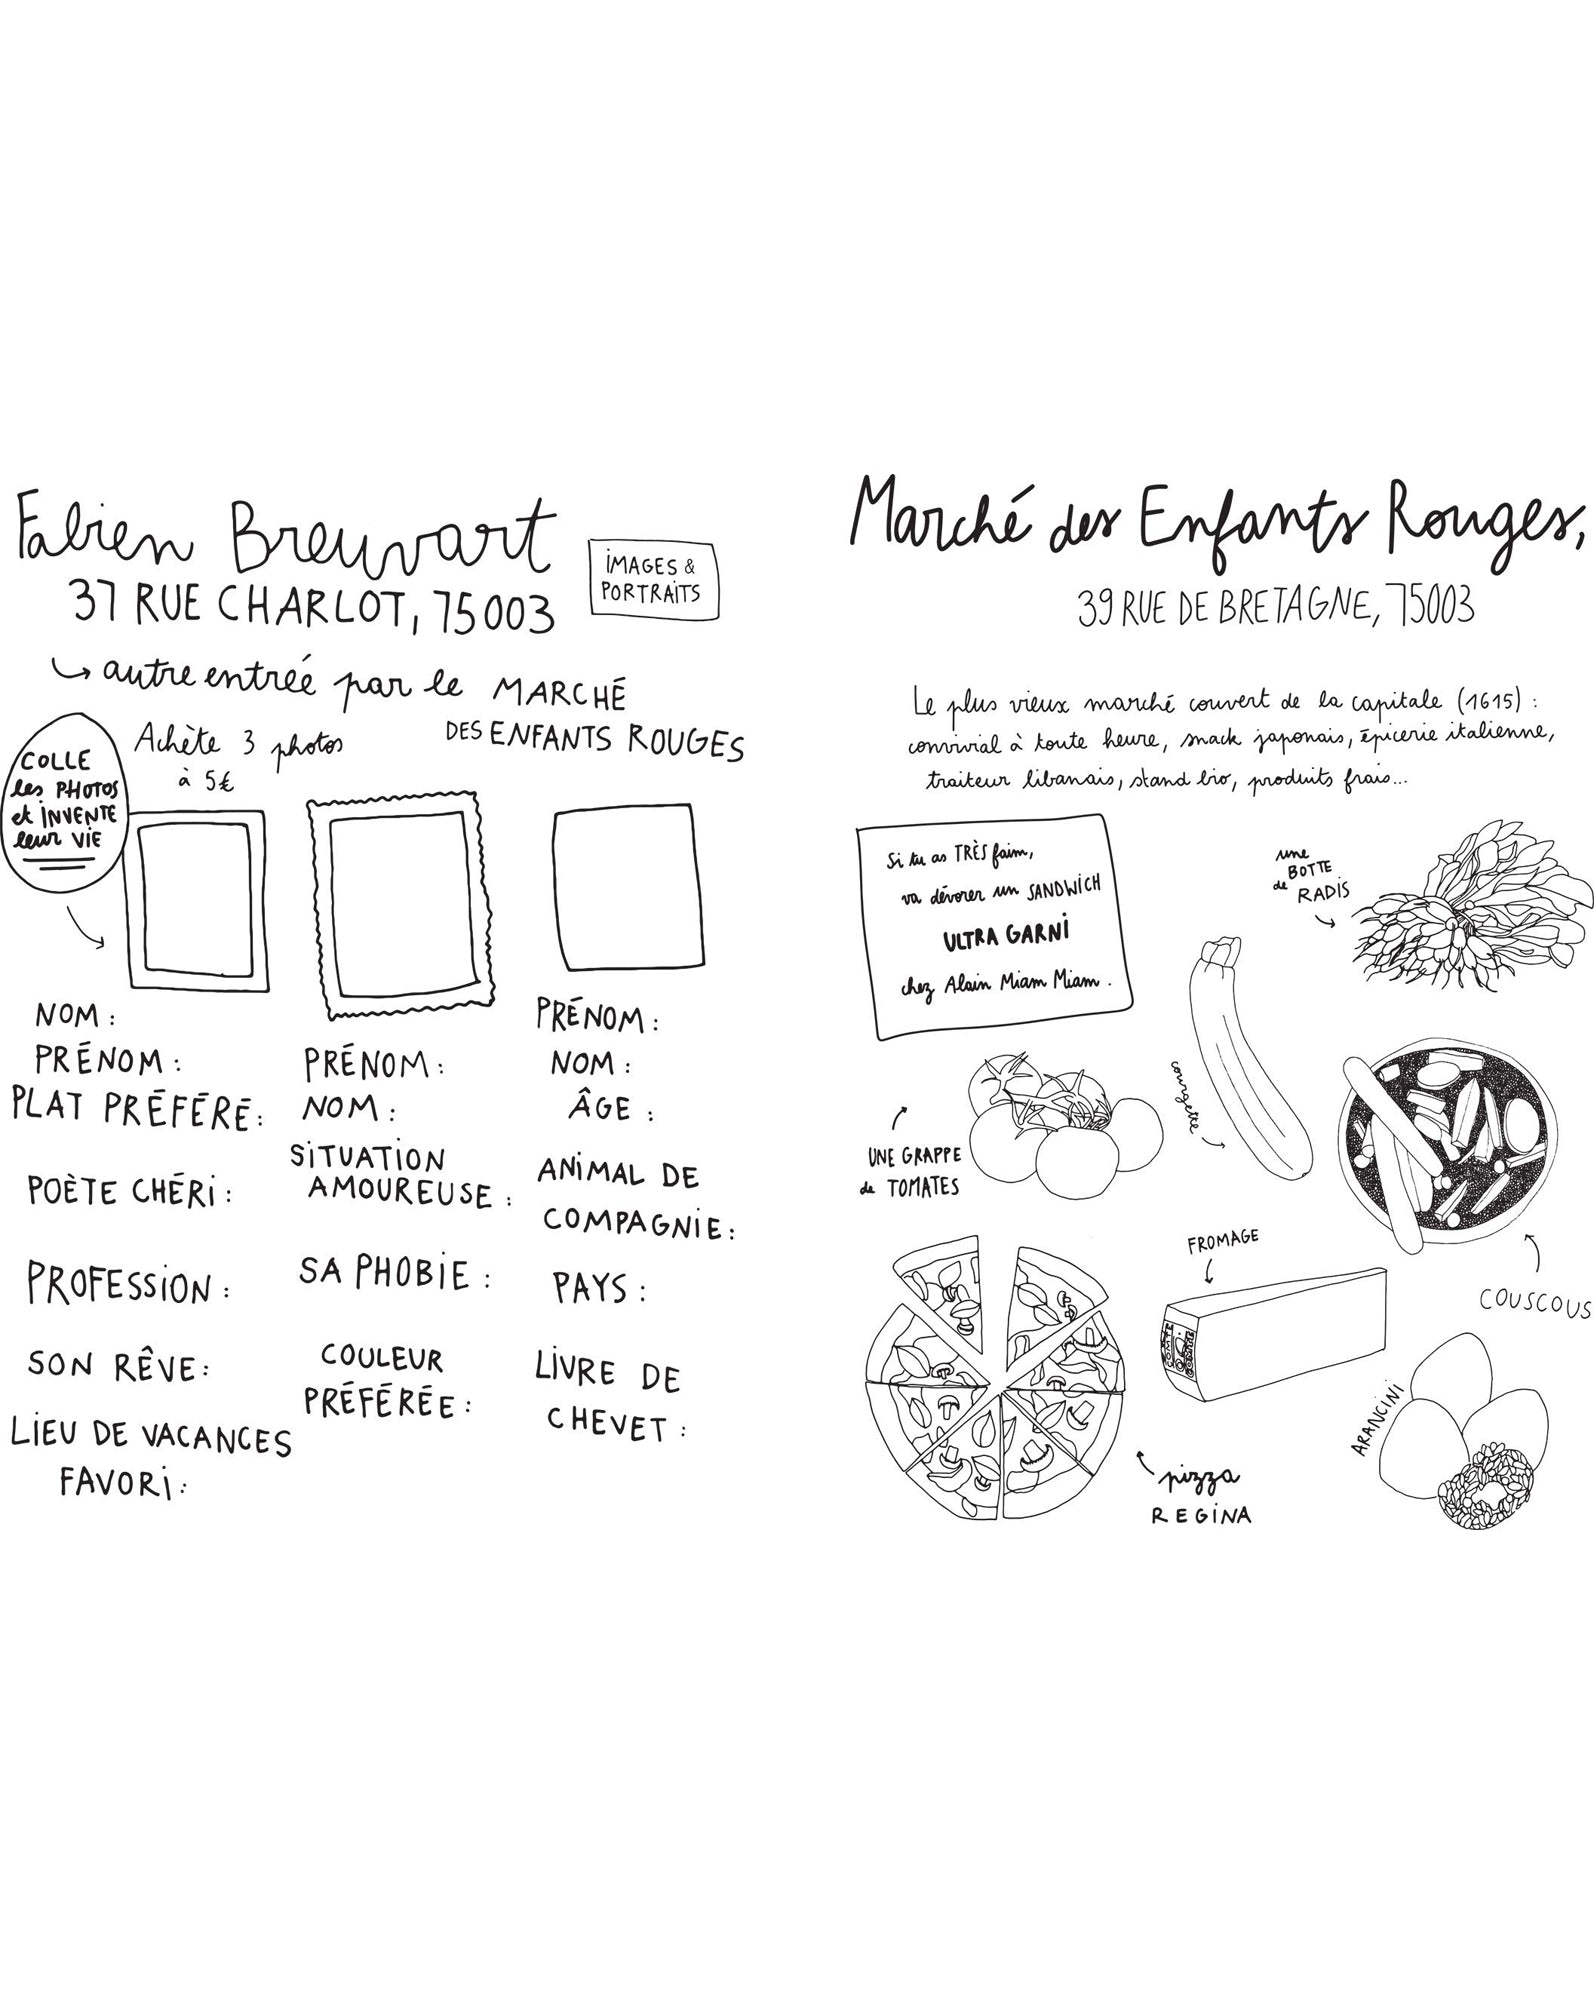 Fabien Breuvart
37 RUE CHARLOT, 75003
IMAGES &
PORTRAITS
autre entrée par le MARCHÉ
DES ENFANTS ROUGES
COLLE
les PHOTOS
et INVENTE
leur VIE
Achète 3 photos
à 5€
NOM :
PRÉNOM :
PLAT PRÉFÉRÉ :
POÈTE CHÉRI :
PROFESSION :
SON RÊVE :
LIEU DE VACANCES
FAVORI :
PRÉNOM :
NOM :
SITUATION
AMOUREUSE :
SA PHOBIE :
COULEUR
PRÉFÉRÉE :
PRÉNOM :
NOM :
ÂGE :
ANIMAL DE
COMPAGNIE :
PAYS :
LIVRE DE
CHEVET :
Marché des Enfants Rouges,
39 RUE DE BRETAGNE, 75003
Le plus vieux marché couvert de la capitale (1615) :
convivial à toute heure, snack japonais, épicerie italienne,
traiteur libanais, stand bio, produits frais...
Si tu as TRÈS faim,
va dévorer un SANDWICH
ULTRA GARNI
chez Alain Miam Miam.
une
BOTTE
de RADIS
courgette
UNE GRAPPE
de TOMATES
FROMAGE
COMTÉ
COMTÉ
COUSCOUS
ARANCINI
pizza
REGINA